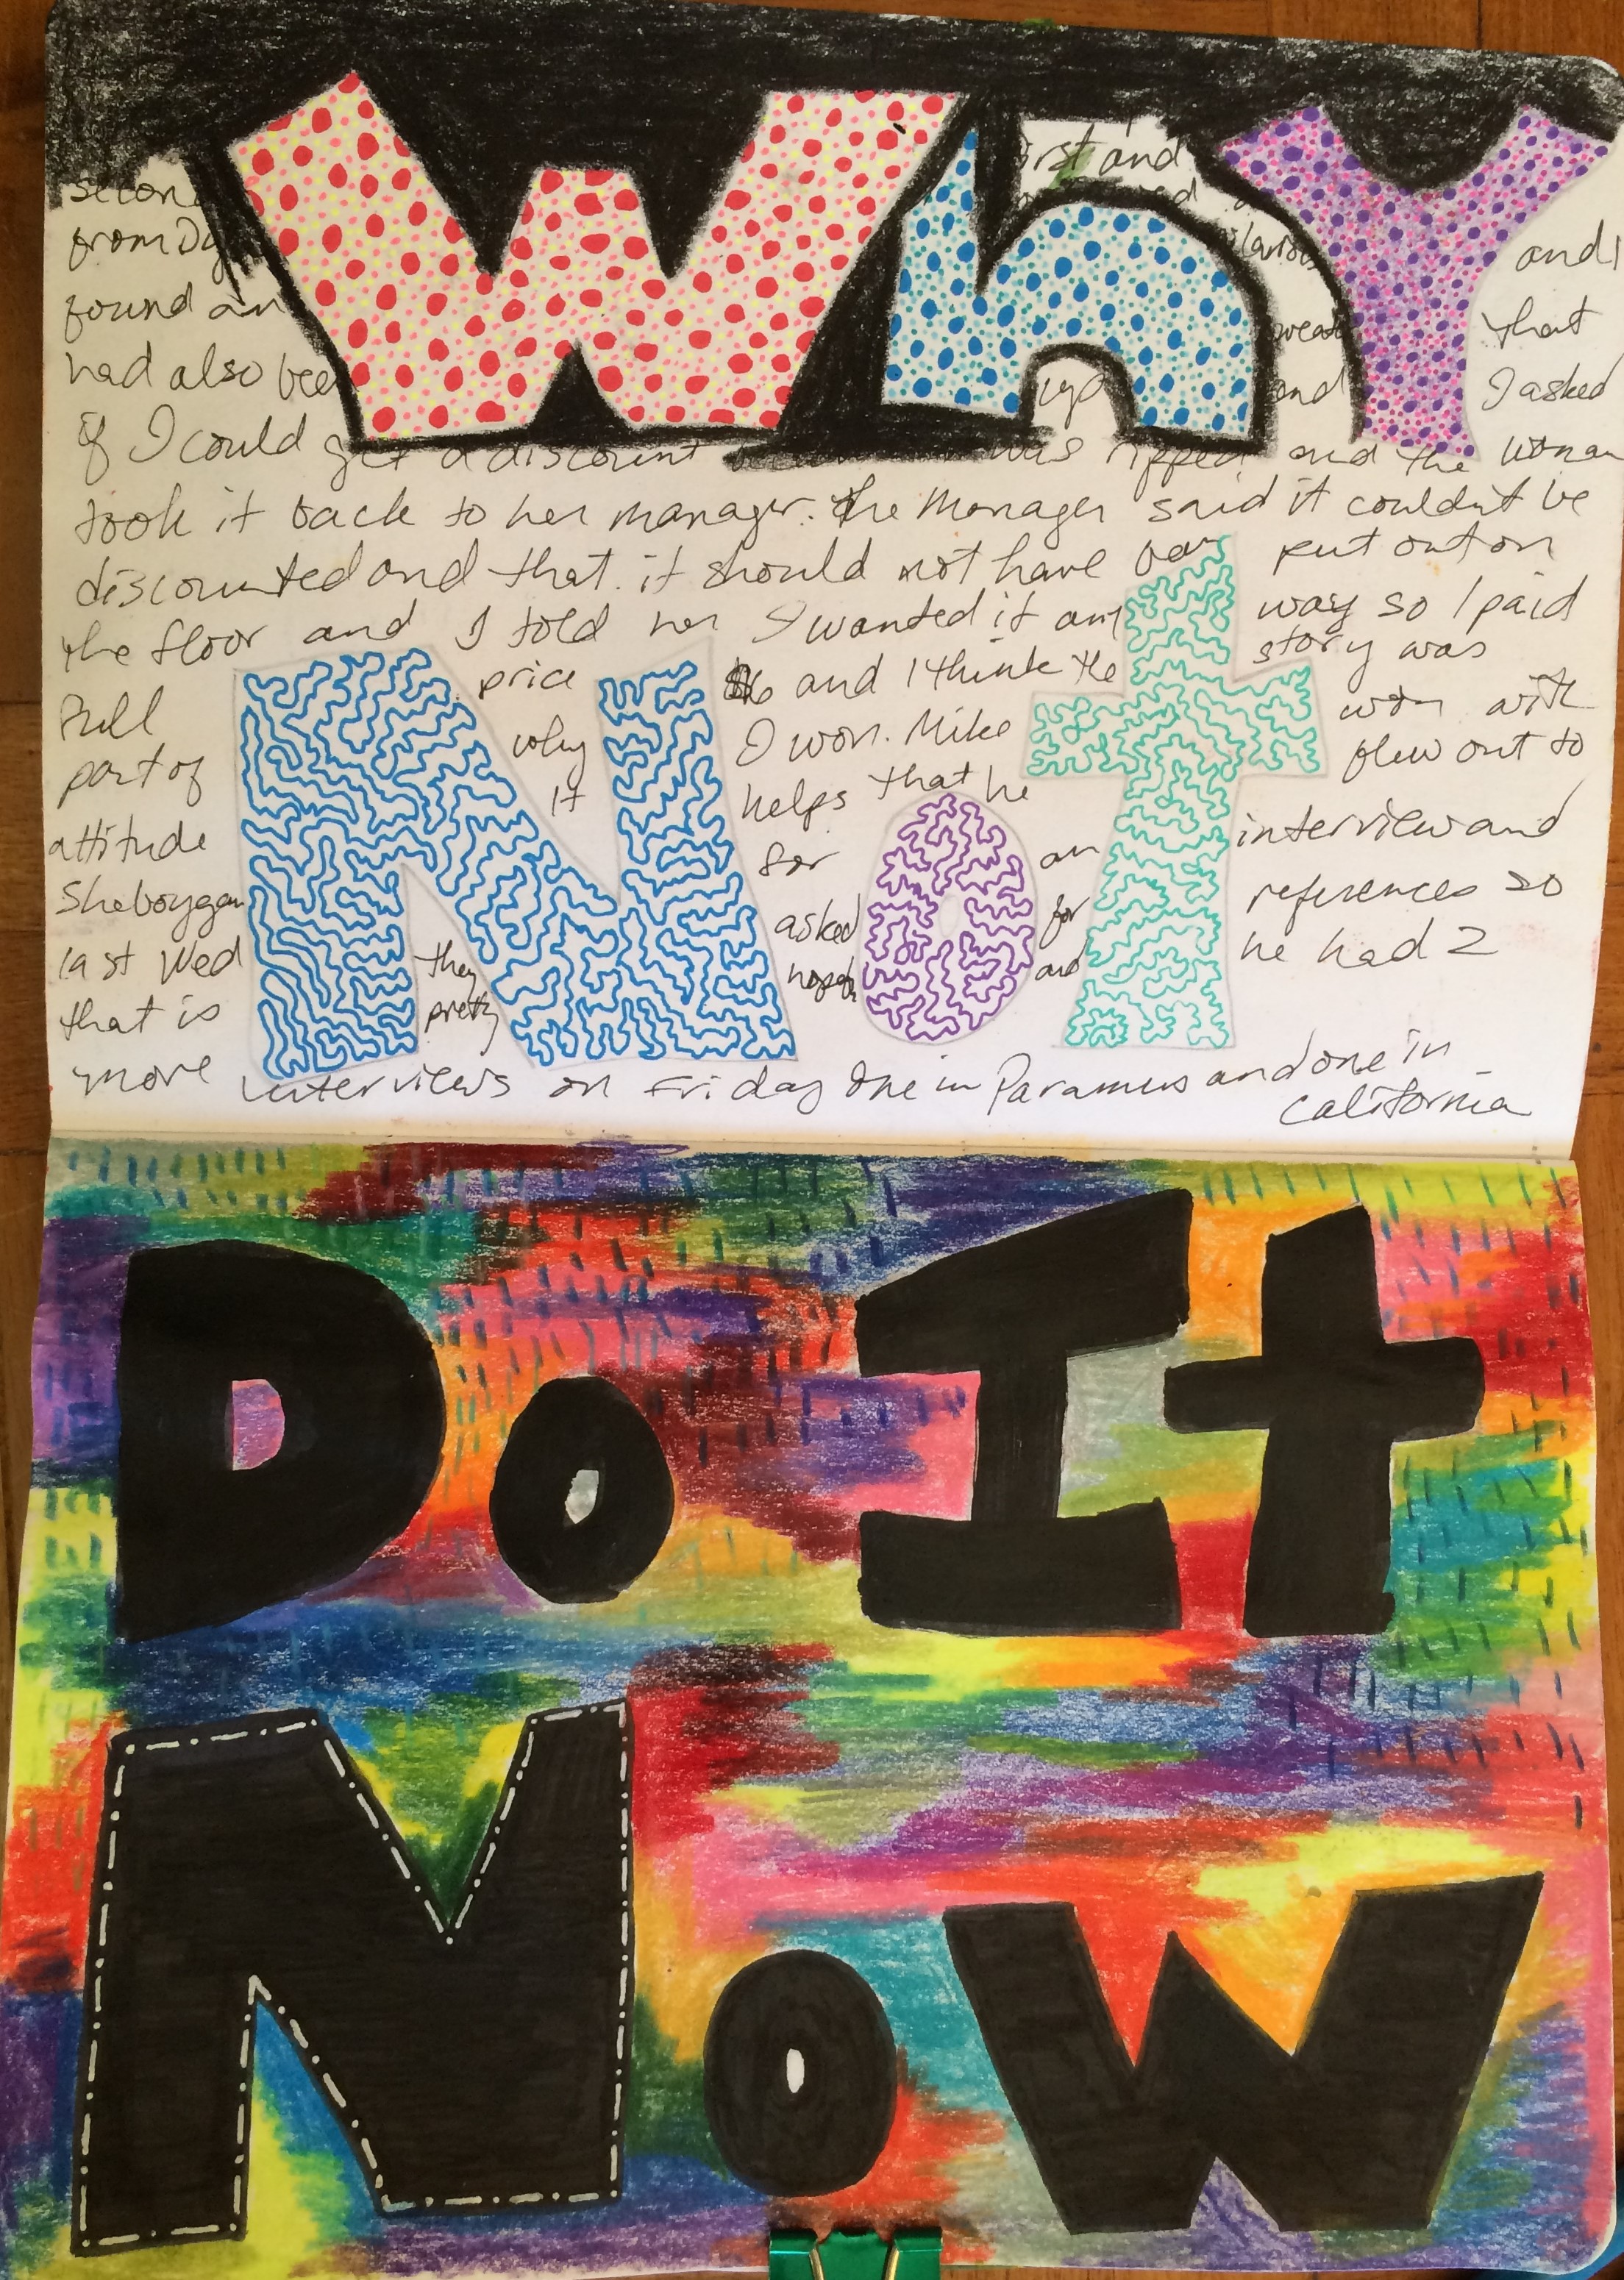 Why
first and
second
from
found an and I
had also been that
up and I asked
if I could get a discount was ripped and the woman
took it back to her manager. the manager said it couldn't be
discounted and that it should not have been put out on
the floor and I told her I wanted it any way so I paid
full price $6 and I think the story was
part of why I won. Mike won with
attitude It helps that he flew out to
Sheboygan for an interview and
last Wed asked for references so
that is they pretty and he had 2
more interviews on Friday One in Paramus and one in
California
Not
Do It
Now